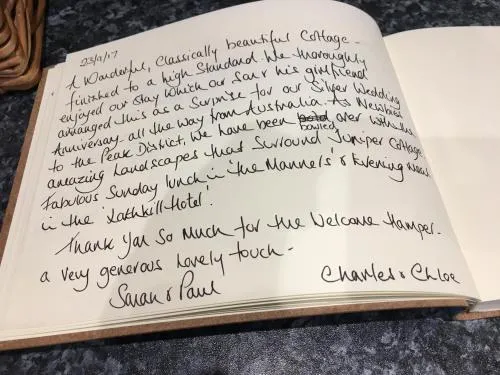 23/9/17
A Wonderful, Classically beautiful Cottage -
finished to a high Standard. We thoroughly
enjoyed our Stay which our Son & his girlfriend
arranged this as a Surprise for our Silver Wedding
Anniversary - all the way from Australia. As Newbies
to the Peak District, we have been bowled over with the
amazing Landscapes that Surround Juniper Cottage.
Fabulous Sunday lunch in 'the Manners' & Evening meal
in the 'Lathkill Hotel'.
Thank You So Much for the Welcome Hamper -
a very generous lovely touch -
Sarah & Paul
Charles & Chloe